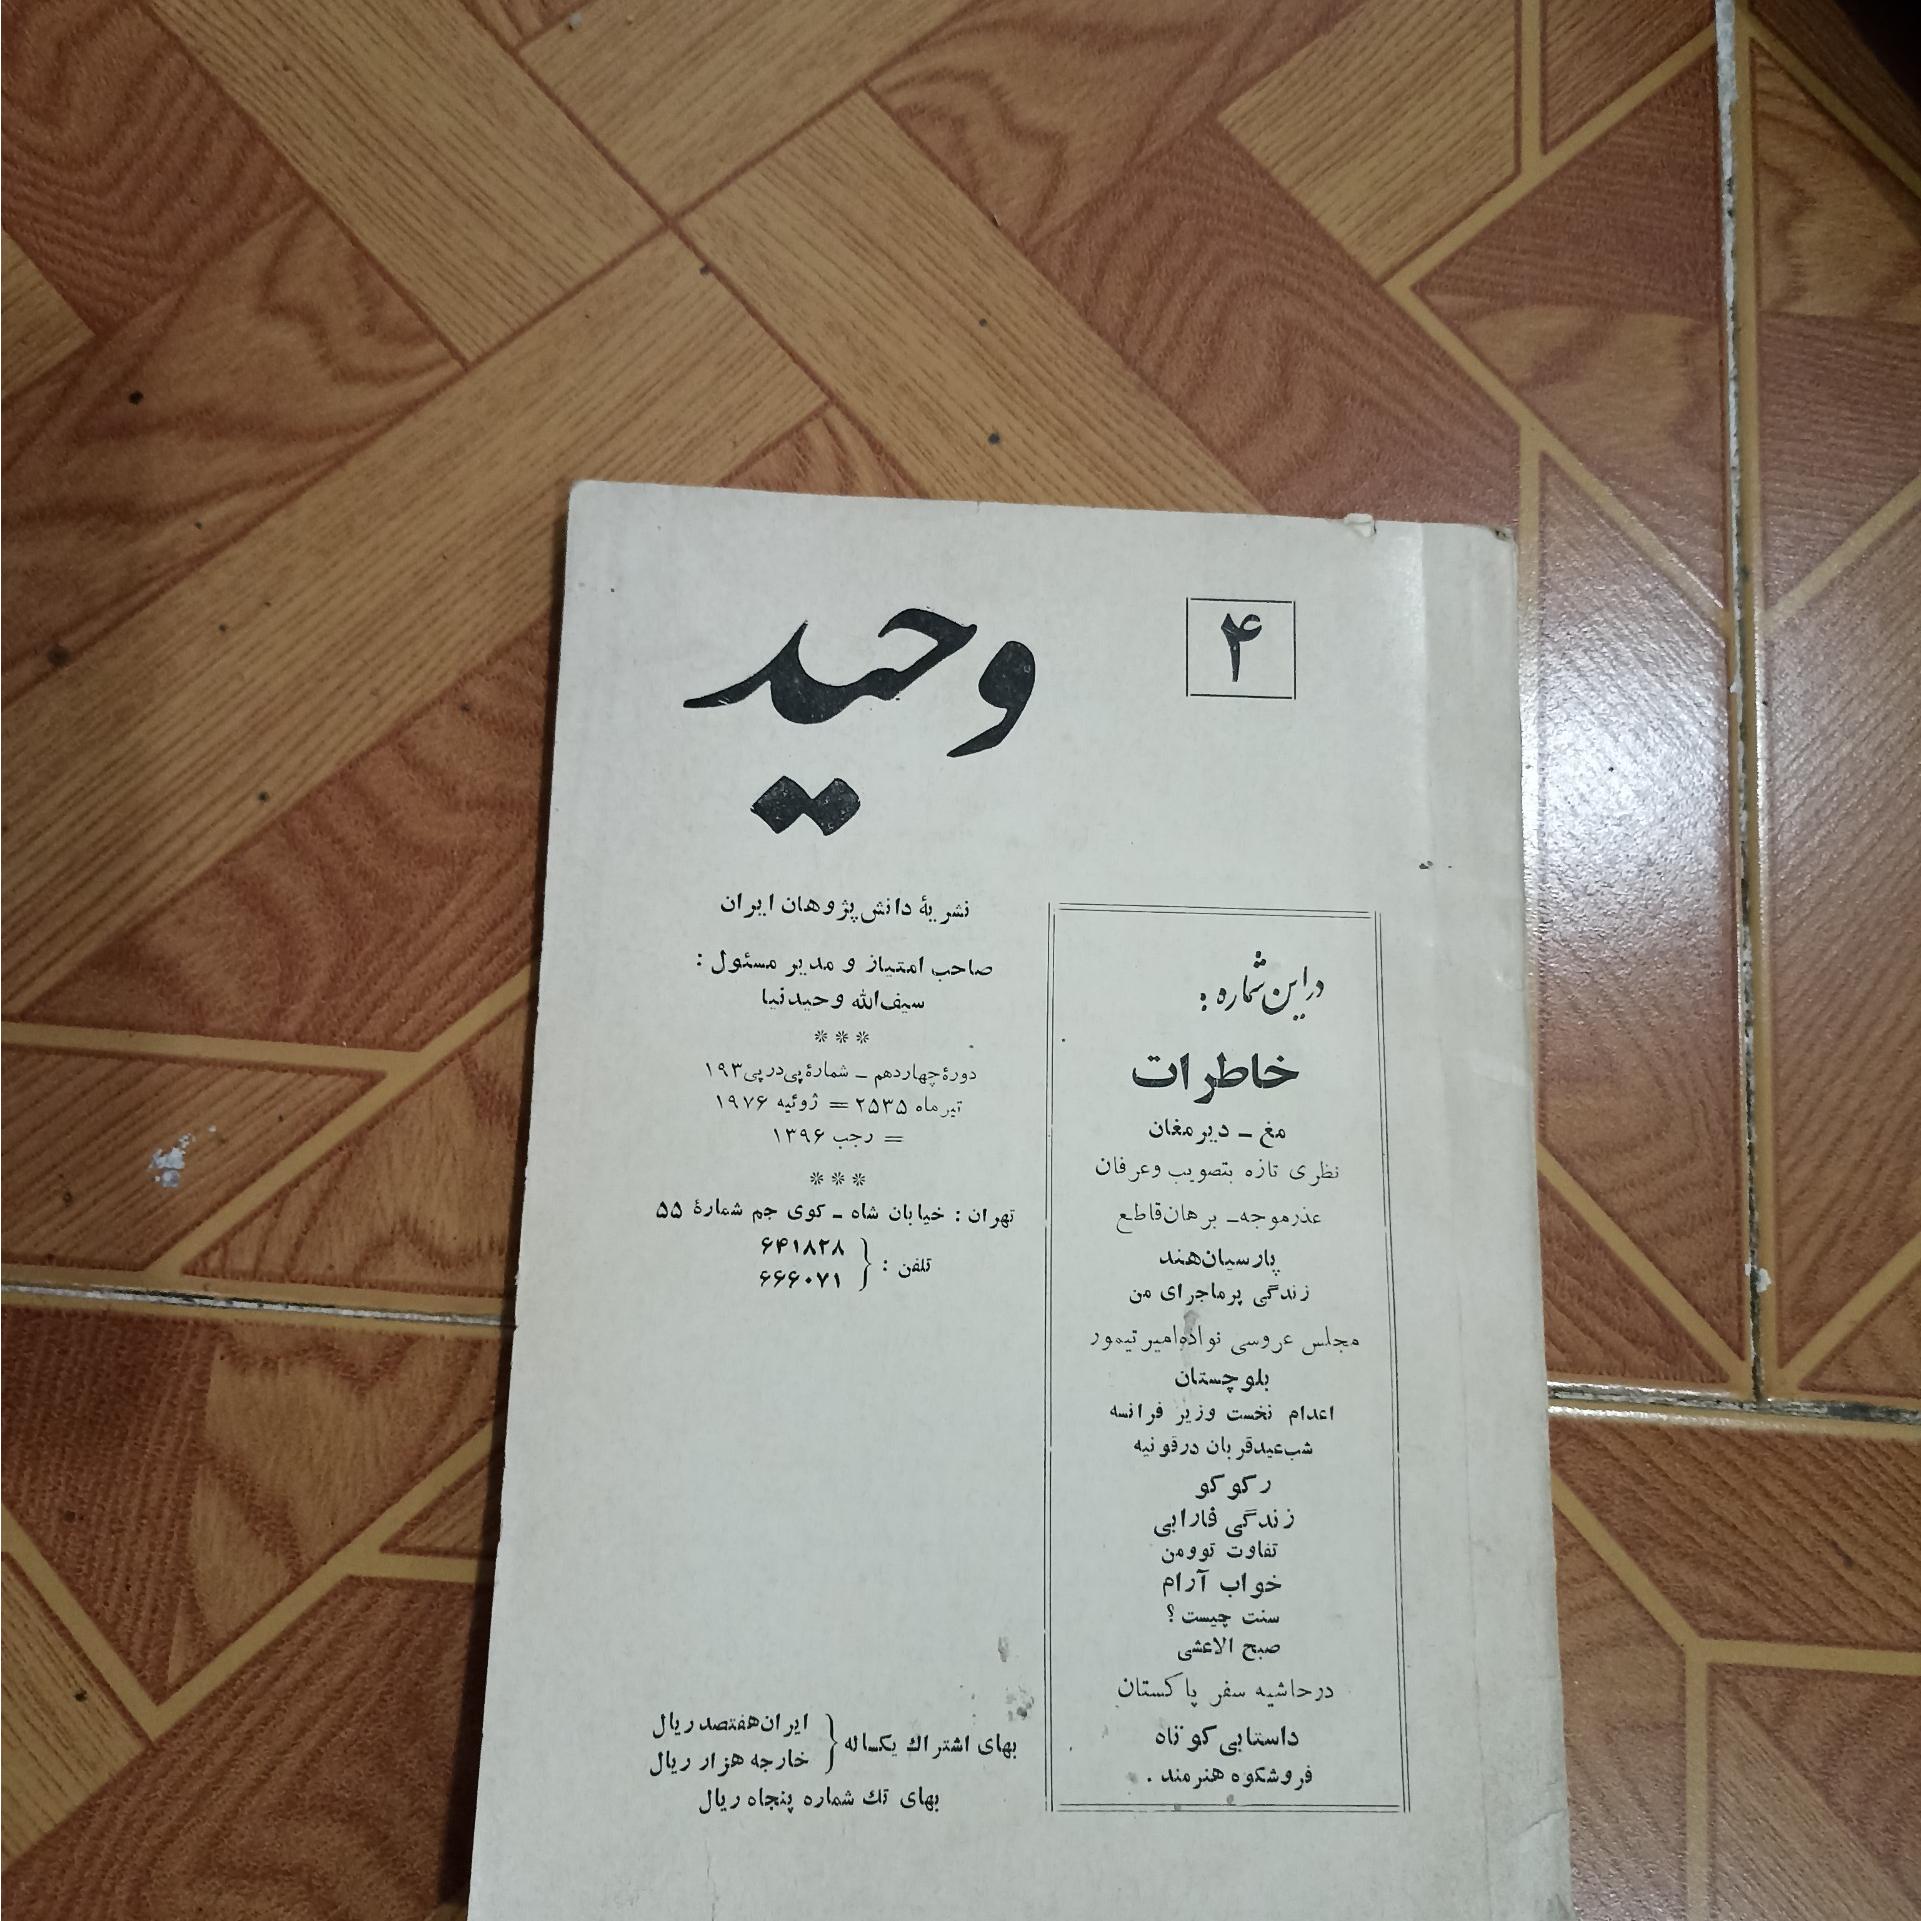 ۴
وحید
نشریهٔ دانش پژوهان ایران
صاحب امتیاز و مدیر مسئول :
سیف‌الله وحیدنیا
***
دورهٔ چهاردهم ـ شمارهٔ پی‌در پی ۱۹۳
تیرماه ۲۵۳۵ = ژوئیه ۱۹۷۶
= رجب ۱۳۹۶
***
تهران : خیابان شاه ـ کوی جم شمارهٔ ۵۵
تلفن : { ۶۴۱۸۲۸
۶۶۶۰۷۱
بهای اشتراك یکساله { ایران هفتصد ریال
خارجه هزار ریال
بهای تك شماره پنجاه ریال
در این شماره :
خاطرات
مغ ـ دیر مغان
نظری تازه بتصویب وعرفان
عذر موجه ـ برهان قاطع
پارسیان هند
زندگی پرماجرای من
مجلس عروسی نواذه امیر تیمور
بلوچستان
اعدام نخست وزیر فرانسه
شب عید قربان در قونیه
رکوکو
زندگی فارابی
تفاوت تو و من
خواب آرام
سنت چیست ؟
صبح الاعشی
در حاشیه سفر پاکستان
داستانی کوتاه
فروشکوه هنرمند .